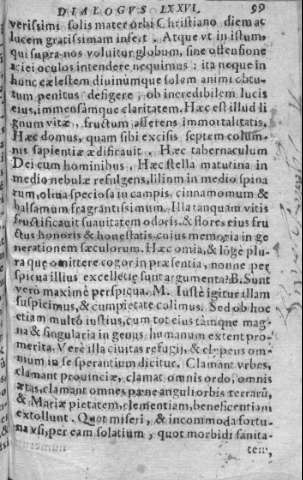 DIALOGVS LXXVI. 59
verissimi solis mater orbi Christiano diem at
lucem gratissimam infert. Atque vt in istum,
qui supra nos voluitur globum, sine offensione
aciei oculos intendere nequimus: ita neque in
hunc cælestem diuinumque solem animi obtu-
tum penitus defigere, ob incredibilem lucis
eius, immensámque claritatem. Hæc est illud li
gnum vitæ, fructum afferens immortalitatis,
Hæc domus, quam sibi excisis septem colum-
nis sapientia ædificauit, Hæc tabernaculum
Dei cum hominibus, Hæc stella matutina in
medio nebulæ refulgens, lilium in medio spina
rum, oliua speciosa in campis, cinnamomum &
balsamum fragrantissimum. Illa tanquam vitis
fructificauit suauitatem odoris, & flores eius fru
ctus honoris & honestatis, cuius memoria in ge
nerationem sæculorum. Hæc omia, & lõge plu
ra que omittere cogor in præsentia, nonne per
spicua illius excellētię sunt argumenta? B. Sunt
vero maximè perspiqua. M. Iustè igitur illam
suspicimus, & cum pietate colimus. Sed ob hoc
etiam multò iustius, cum tot eius támque mag
na & singularia in genus humanum extent pro
merita. Verè illa ciuitas refugij, & clypeus om
nium in se sperantium dicitur. Clamant vrbes,
clamant prouinciæ, clamat omnis ordo, omnis
ætas, clamant omnes pæne anguli orbis terrarũ,
& Mariæ pietatem, clementiam, beneficentiam
extollunt. Quot miseri, & incommoda fortu-
na vsi, per eam solatium, quot morbidi sanita-
tem,